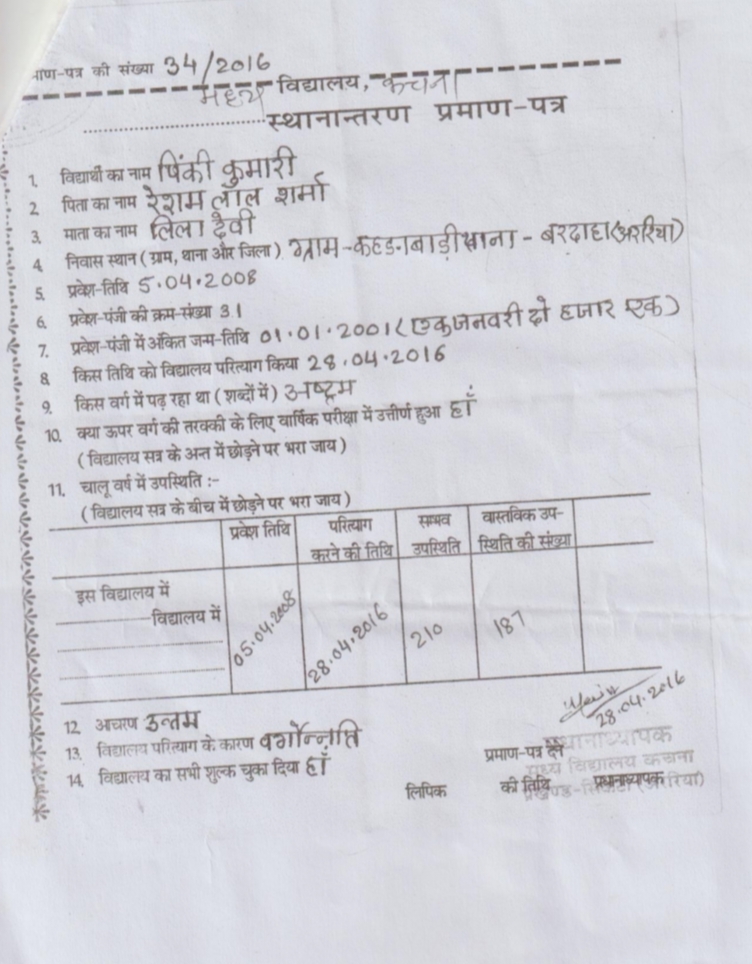 माण-पत्र की संख्या 34/2016
मध्य विद्यालय, कचना
स्थानान्तरण प्रमाण-पत्र
1. विद्यार्थी का नाम पिंकी कुमारी
2. पिता का नाम रेशम लाल शर्मा
3. माता का नाम लिला देवी
4. निवास स्थान (ग्राम, थाना और जिला) ग्राम-कहडनबाड़ी थाना - बरदाहा (अररिया)
5. प्रवेश-तिथि 5.04.2008
6. प्रवेश-पंजी की क्रम-संख्या 31
7. प्रवेश-पंजी में अंकित जन्म-तिथि 01.01.2001 (एक जनवरी दो हजार एक)
8. किस तिथि को विद्यालय परित्याग किया 28.04.2016
9. किस वर्ग में पढ़ रहा था (शब्दों में) अष्टम
10. क्या ऊपर वर्ग की तरक्की के लिए वार्षिक परीक्षा में उत्तीर्ण हुआ हाँ
(विद्यालय सत्र के अन्त में छोड़ने पर भरा जाय)
11. चालू वर्ष में उपस्थिति :-
(विद्यालय सत्र के बीच में छोड़ने पर भरा जाय)
प्रवेश तिथि परित्याग सम्भव वास्तविक उप-
करने की तिथि उपस्थिति स्थिति की संख्या
इस विद्यालय में
विद्यालय में 05.04.2008 28.04.2016 210 187
28.04.2016
12. आचरण उत्तम
13. विद्यालय परित्याग के कारण वर्गोन्नति
14. विद्यालय का सभी शुल्क चुका दिया हाँ
प्रमाण-पत्र देने प्रधानाध्यापक
मध्य विद्यालय कचना
लिपिक की तिथि प्रधानाध्यापक